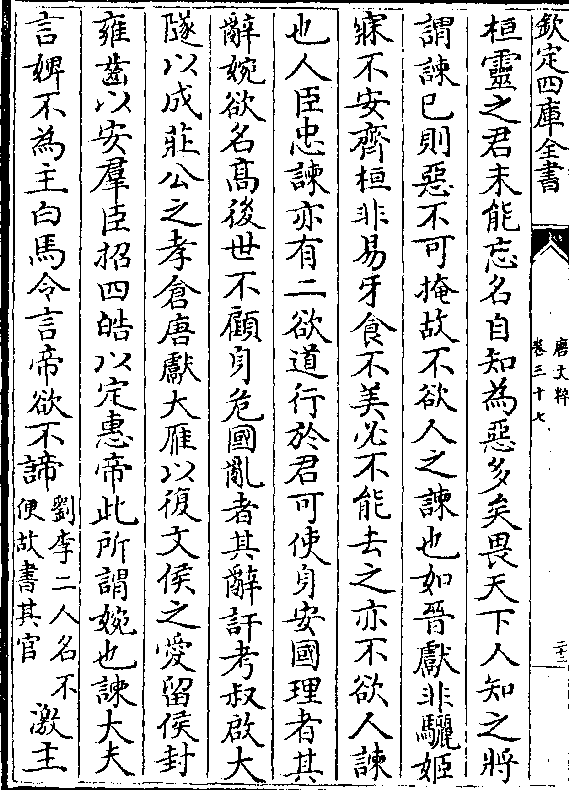 欽定四庫全書
唐文粹
卷三十七
二十三
桓靈之君未能忘名自知為惡多矣畏天下人知之將
謂諫己則惡不可掩故不欲人之諫也如晉獻非驪姬
寐不安齊桓非易牙食不美必不能去之亦不欲人諫
也人臣忠諫亦有二欲道行於君可使身安國理者其
辭婉欲名高後世不顧身危國亂者其辭訐考叔啟大
隧以成莊公之孝倉唐獻大雁以復文侯之愛留侯封
雍齒以安羣臣招四皓以定惠帝此所謂婉也諫大夫
言婢不為主白馬令言帝欲不諦
劉李二人名不
便故書其官
激主